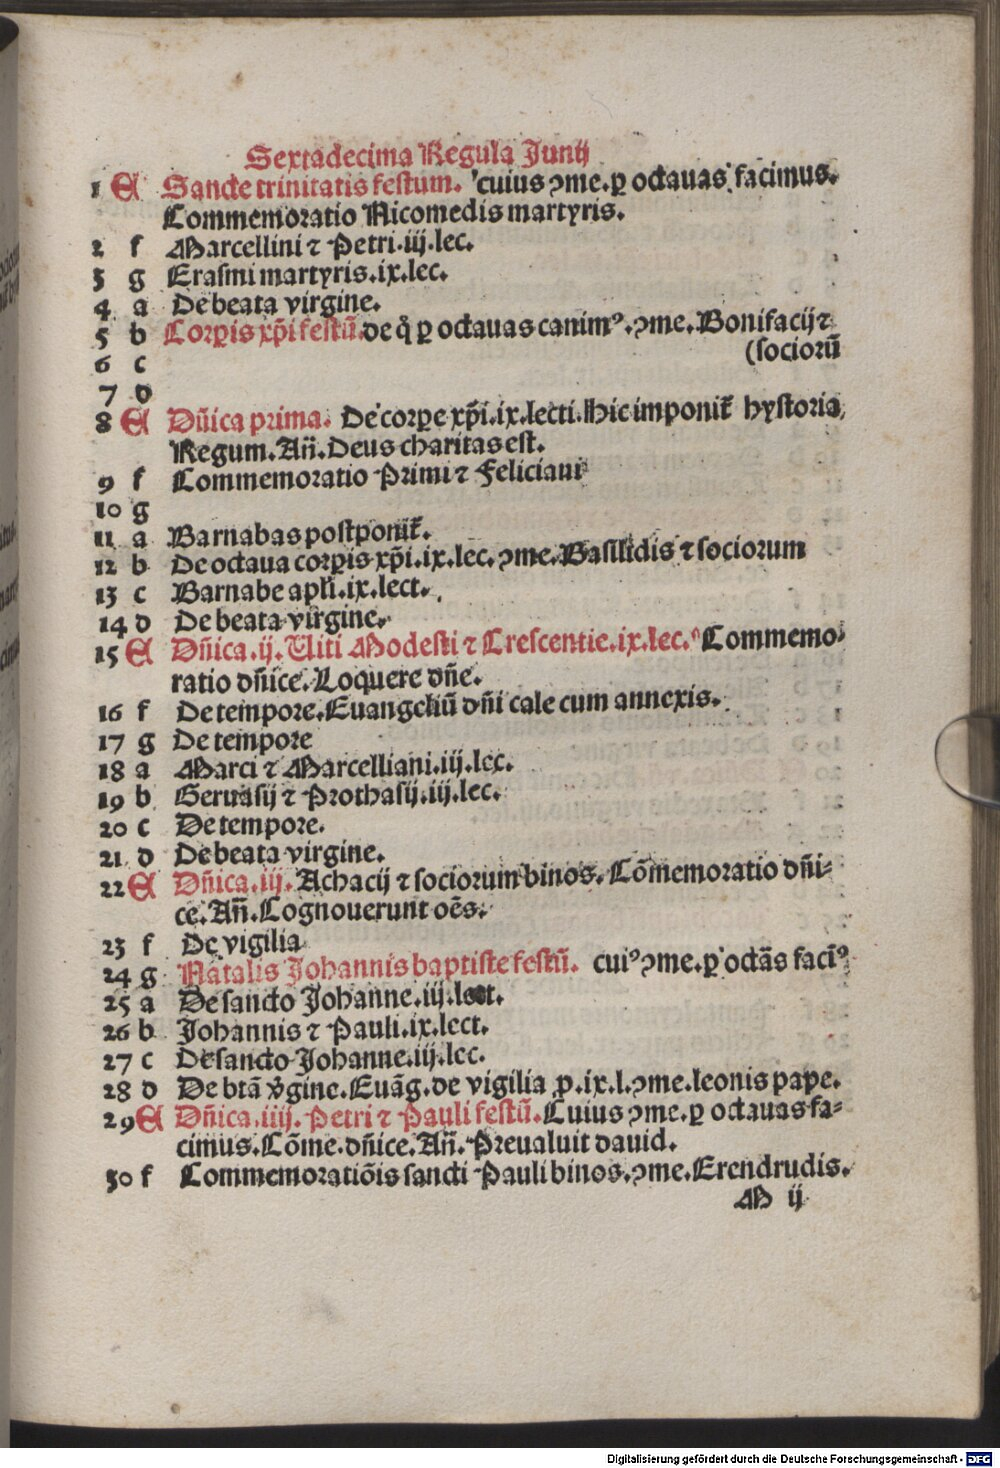 Sextadecima Regula Junij
1 A Sancte trinitatis festum. cuius ꝯme. ꝑ octauas facimus.
Commemoratio Nicomedis martyris.
2 f Marcellini ⁊ Petri. iij. lec.
3 g Erasmi martyris. ix. lec.
4 a De beata virgine.
5 b Corꝑis xp̄i festū. de q̊ ꝑ octauas canimꝰ. ꝯme. Bonifacij ⁊
(sociorū
6 c
7 d
8 A Dn̄ica prima. De corꝑe xp̄i. ix. lecti. Hic imponit̄ hystoria
Regum. An̄. Deus charitas est.
9 f Commemoratio Primi ⁊ Feliciani
10 g
11 a Barnabas postponit̄.
12 b De octaua corꝑis xp̄i. ix. lec. ꝯme. Basilidis ⁊ sociorum
13 c Barnabe apl̄i. ix. lect.
14 d De beata virgine.
15 A Dn̄ica. ij. Uiti Modesti ⁊ Crescentie. ix. lec. Commemo-
ratio dn̄ice. Loquere dn̄e.
16 f De tempore. Euangeliū dn̄i cale cum annexis.
17 g De tempore
18 a Marci ⁊ Marcelliani. iij. lec.
19 b Geruasij ⁊ Prothasij. iij. lec.
20 c De tempore.
21 d De beata virgine.
22 A Dn̄ica. iij. Achacij ⁊ sociorum binos. Cōmemoratio dn̄i-
ce. An̄. Cognouerunt oēs.
23 f De vigilia
24 g Natalis Johannis baptiste festū. cuiꝰ ꝯme. ꝑ octāas facīꝰ
25 a De sancto Johanne. iij. lect.
26 b Johannis ⁊ Pauli. ix. lect.
27 c De sancto Johanne. iij. lec.
28 d De btā v̄gine. Euāg. de vigilia ꝑ. ix. l. ꝯme. leonis pape.
29 A Dn̄ica. iiij. Petri ⁊ Pauli festū. Cuius ꝯme. ꝑ octauas fa-
cimus. Cōme. dn̄ice. An̄. Preualuit dauid.
30 f Commemoratiōis sancti Pauli binos. ꝯme. Erendrudis.
M ij
Digitalisierung gefördert durch die Deutsche Forschungsgemeinschaft - DFG